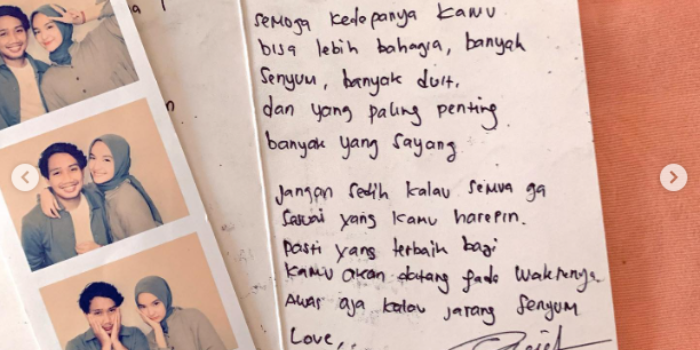 semoga kedepanya kamu
bisa lebih bahagia, banyak
senyum, banyak duit.
dan yang paling penting
banyak yang sayang
Jangan sedih kalau semua ga
sesuai yang kamu harepin.
pasti yang terbaik bagi
kamu akan datang pada waktunya
Awas aja kalau jarang senyum
Love,